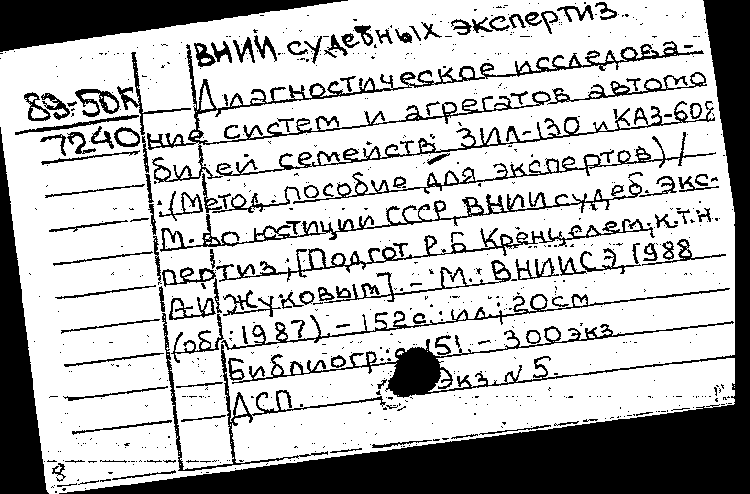 ВНИИ судебных экспертиз.
89-50К
7240
Диагностическое исследова-
ние систем и агрегатов автомо
билей семейств ЗИЛ-130 и КАЗ-608
:(Метод. пособие для экспертов) /
М-во юстиции СССР, ВНИИ судеб. экс-
пертиз; [Подгот. Р.Б Кренцелем, к.т.н.
А-И Жуковым]. - М.: ВНИИСЭ, 1988
(обл.:1987). - 152с.: ил.; 20см
Библиогр.: с. 151. - 300экз.
ДСП. Экз. N 5.
8